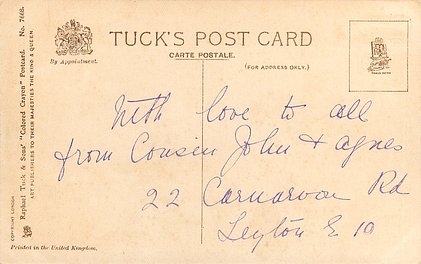 TUCK'S POST CARD
CARTE POSTALE.
(FOR ADDRESS ONLY.)
By Appointment.
With love to all
from Cousin John & Agnes
22 Carnarvon Rd
Leyton E 10
Raphael Tuck & Sons' "Colored Crayon" Postcard. No. 7668.
ART PUBLISHERS TO THEIR MAJESTIES THE KING & QUEEN.
COPYRIGHT LONDON
Printed in the United Kingdom.